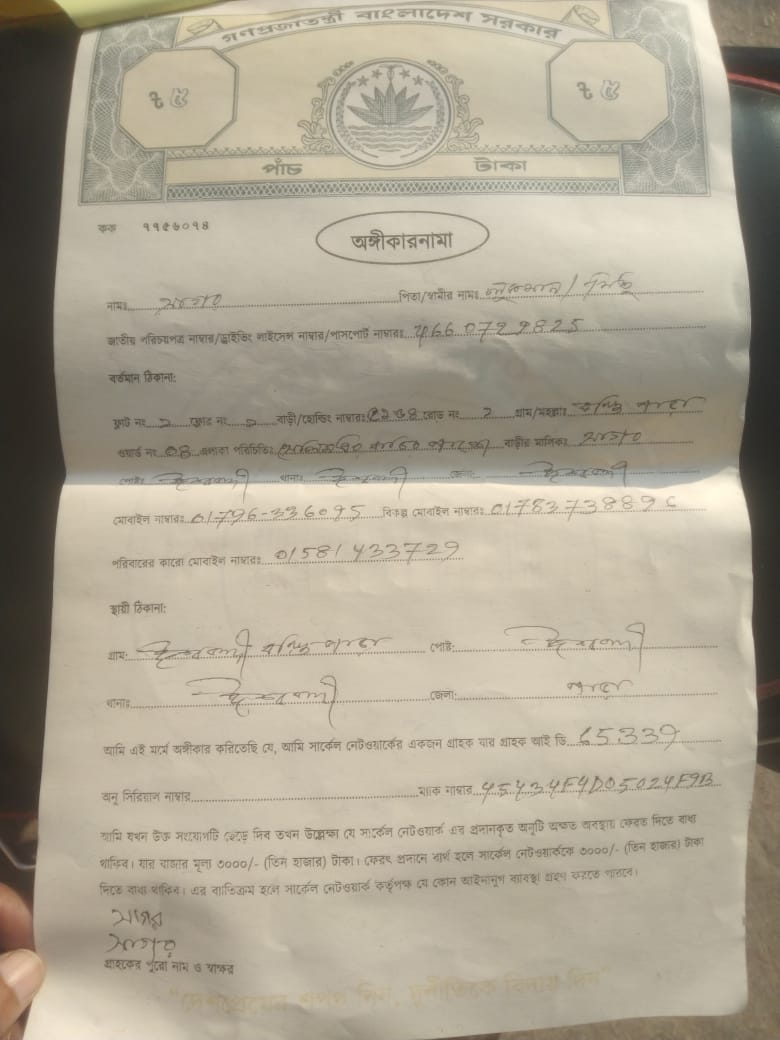 গণপ্রজাতন্ত্রী বাংলাদেশ সরকার
৳ ৫ ৳ ৫
পাঁচ টাকা
কক ৭৭৫৬০৭৪
অঙ্গীকারনামা
নামঃ সাগর পিতা/স্বামীর নামঃ
জাতীয় পরিচয়পত্র নাম্বার/ড্রাইভিং লাইসেন্স নাম্বার/পাসপোর্ট নাম্বারঃ 4660729825
বর্তমান ঠিকানা:
ফ্লাট নং ফ্লোর নং বাড়ী/হোল্ডিং নাম্বারঃ রোড নং গ্রাম/মহল্লাঃ
ওয়ার্ড নং 08 এলাকা পরিচিতিঃ বাড়ীর মালিকঃ সাগর
পোষ্টঃ ঈশ্বরদী থানাঃ ঈশ্বরদী জেলাঃ ঈশ্বরদী
মোবাইল নাম্বারঃ 01796-336095 বিকল্প মোবাইল নাম্বারঃ
পরিবারের কারো মোবাইল নাম্বারঃ 01581433729
স্থায়ী ঠিকানা:
গ্রাম: ঈশ্বরদী পোষ্ট: ঈশ্বরদী
থানাঃ ঈশ্বরদী জেলা:
আমি এই মর্মে অঙ্গীকার করিতেছি যে, আমি সার্কেল নেটওয়ার্কের একজন গ্রাহক যার গ্রাহক আই ডি 65339
অনু সিরিয়াল নাম্বার ম্যাক নাম্বার 45434F4D05024F9B
আমি যখন উক্ত সংযোগটি ছেড়ে দিব তখন উল্লেক্ষা যে সার্কেল নেটওয়ার্ক এর প্রদানকৃত অনুটি অক্ষত অবস্থায় ফেরত দিতে বাধ্য
থাকিব। যার বাজার মূল্য ৩০০০/- (তিন হাজার) টাকা। ফেরৎ প্রদানে ব্যর্থ হলে সার্কেল নেটওয়ার্ককে ৩০০০/- (তিন হাজার) টাকা
দিতে বাধ্য থাকিব। এর ব্যতিক্রম হলে সার্কেল নেটওয়ার্ক কর্তৃপক্ষ যে কোন আইনানুগ ব্যবস্থা গ্রহণ করতে পারবে।
সাগর
সাগর
গ্রাহকের পুরো নাম ও স্বাক্ষর
"দেশপ্রেমের শপথ নিন, দুর্নীতিকে বিদায় দিন"